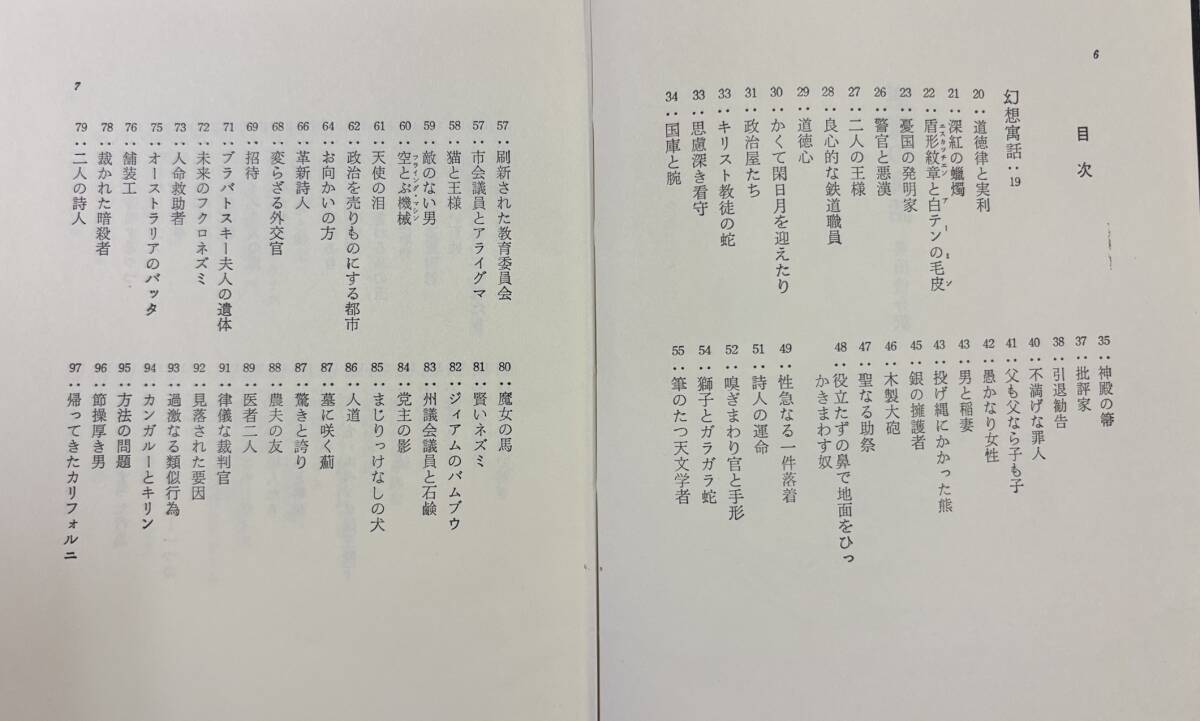 6
目次
幻想寓話‥19
20‥道徳律と実利
21‥深紅の蠟燭
22‥盾形紋章と白テンの毛皮
エスカッチェン
アーミン
23‥憂国の発明家
26‥警官と悪漢
27‥二人の王様
28‥良心的な鉄道職員
29‥道徳心
30‥かくて閑日月を迎えたり
31‥政治屋たち
33‥キリスト教徒の蛇
33‥思慮深き看守
34‥国庫と腕
35‥神殿の箒
37‥批評家
38‥引退勧告
40‥不満げな罪人
41‥父も父なら子も子
42‥愚かなり女性
43‥男と稲妻
43‥投げ縄にかかった熊
45‥銀の擁護者
46‥木製大砲
47‥聖なる助祭
48‥役立たずの鼻で地面をひっ
かきまわす奴
49‥性急なる一件落着
51‥詩人の運命
52‥嗅ぎまわり官と手形
54‥獅子とガラガラ蛇
55‥筆のたつ天文学者
7
57‥刷新された教育委員会
57‥市会議員とアライグマ
58‥猫と王様
59‥敵のない男
60‥空とぶ機械
フライング・マシン
61‥天使の泪
62‥政治を売りものにする都市
64‥お向かいの方
66‥革新詩人
68‥変らざる外交官
69‥招待
71‥ブラバトスキー夫人の遺体
72‥未来のフクロネズミ
73‥人命救助者
75‥オーストラリアのバッタ
76‥舗装工
78‥裁かれた暗殺者
79‥二人の詩人
80‥魔女の馬
81‥賢いネズミ
82‥ジィアムのバムブウ
83‥州議会議員と石鹸
84‥党主の影
85‥まじりっけなしの犬
86‥人道
87‥墓に咲く薊
87‥驚きと誇り
88‥農夫の友
89‥医者二人
91‥律儀な裁判官
92‥見落された要因
93‥過激なる類似行為
94‥カンガルーとキリン
95‥方法の問題
96‥節操厚き男
97‥帰ってきたカリフォルニ